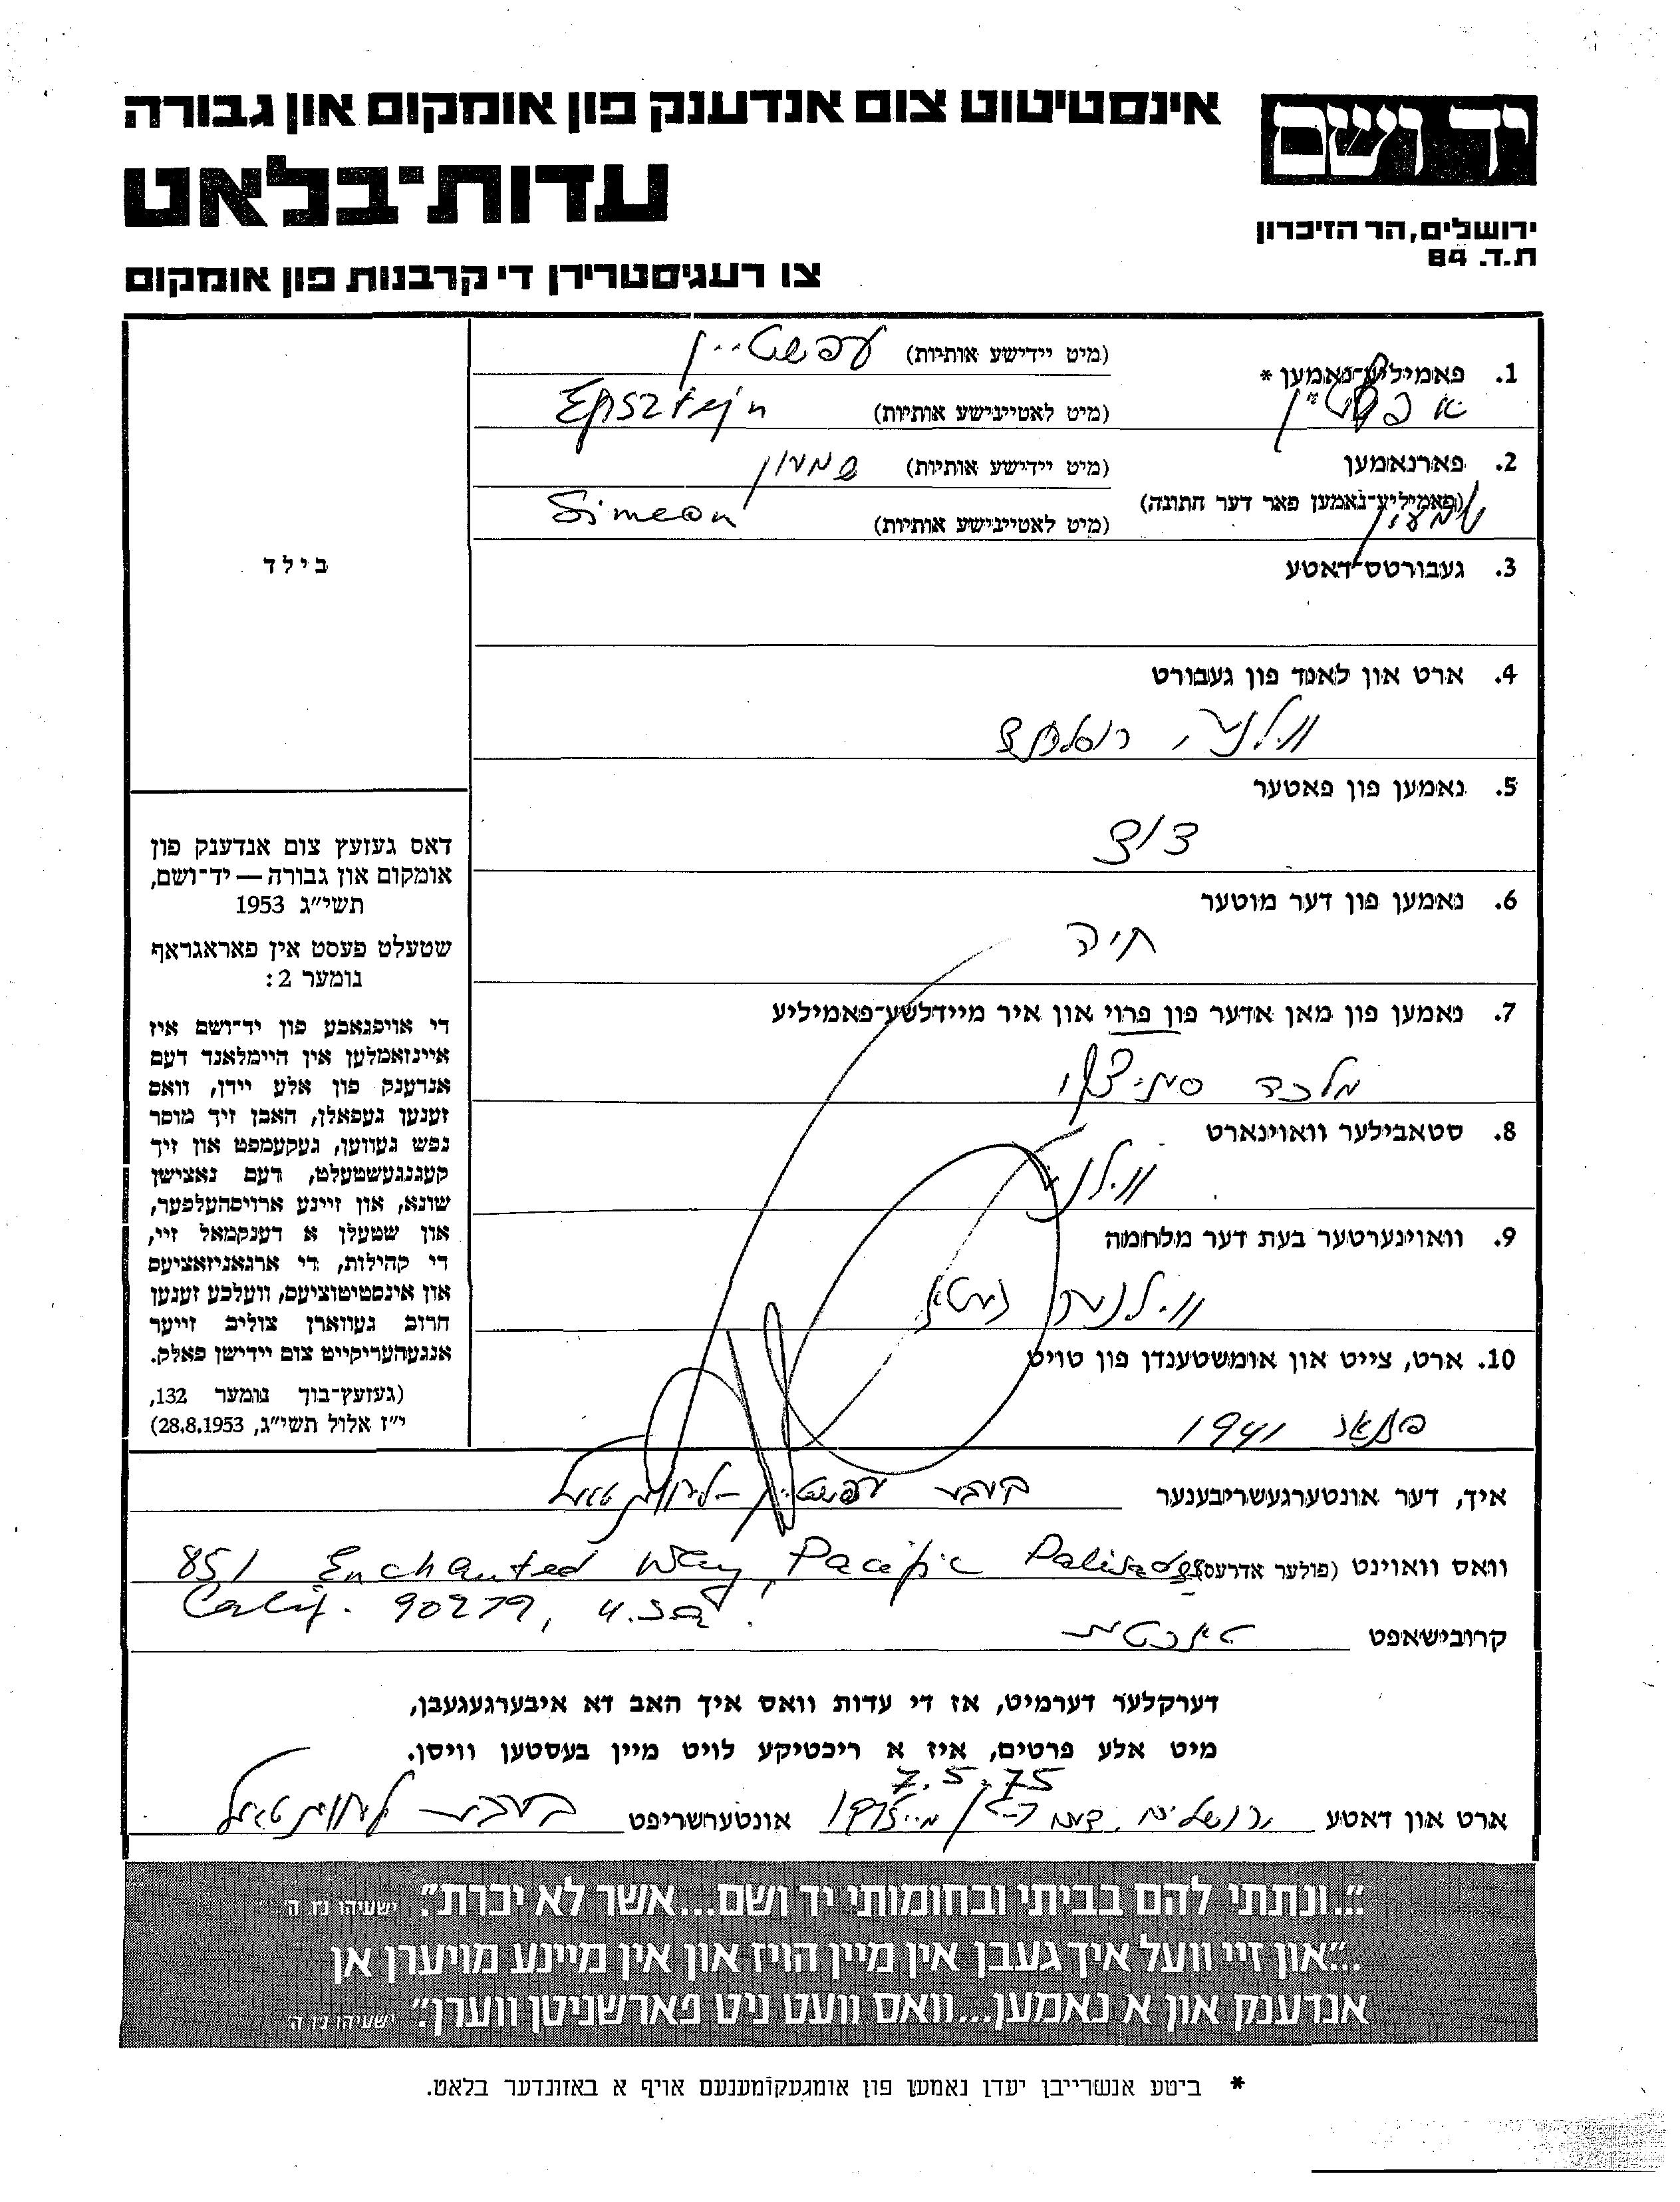 אינסטיטוט צום אנדענק פון אומקום און גבורה
יד ושם
עדות־בלאט
ירושלים, הר הזיכרון
ת.ד. 84
צו רעגיסטרירן די קרבנות פון אומקום
1. פאמיליע־נאמען *
(מיט יידישע אותיות) עפשטיין
אפשטיין
(מיט לאטייניש​ע אותיות) Epsztejn
2. פארנאמען
(מיט יידישע אותיות) שמעון
(פאמיליע־נאמען פאר דער חתונה)
שמעון
(מיט לאטיינישע אותיות) Simeon
בילד
3. געבורטס־דאטע
4. ארט און לאנד פון געבורט
ווילנע,
5. נאמען פון פאטער
דוד
6. נאמען פון דער מוטער
חיה
7. נאמען פון מאן אדער פון פרוי און איר מיידלשע־פאמיליע
מלכה
8. סטאבילער וואוינארט
ווילנע
9. וואוינערטער בעת דער מלחמה
ווילנער געטא
10. ארט, צייט און אומשטענדן פון טויט
פאנאר 1941
דאס געזעץ צום אנדענק פון
אומקום און גבורה — יד־ושם,
תשי״ג 1953
שטעלט פעסט אין פאראגראף
נומער 2:
די אויפגאבע פון יד־ושם איז
איינזאמלען אין היימלאנד דעם
אנדענק פון אלע יידן, וואס
זענען געפאלן, האבן זיך מוסר
נפש געווען, געקעמפט און זיך
קעגנגעשטעלט, דעם נאצישן
שונא, און זיינע ארויסהעלפער,
און שטעלן א דענקמאל זיי,
די קהילות, די ארגאניזאציעס
און אינסטיטוציעס, וועלכע זענען
חרוב געווארן צוליב זייער
אנגעהעריקייט צום יידישן פאלק.
(געזעץ־בוך נומער 132,
י״ז אלול תשי״ג, 28.8.1953)
איד, דער אונטערגעשריבענער עפשטיין
וואס וואוינט (פולער אדרעס) 851 Enchanted Way, Pacific Palisades
Calif. 90279, U.S.A.
קרובישאפט טאכטער
דערקלער דערמיט, אז די עדות וואס איך האב דא איבערגעגעבן,
מיט אלע פרטים, איז א ריכטיקע לויט מיין בעסטען וויסן.
7.5.75
ארט און דאטע ירושלים, אונטערשריפט
"...ונתתי להם בביתי ובחומותי יד ושם...אשר לא יכרת". ישעיהו נו ה
..."און זיי וועל איך געבן אין מיין הויז און אין מיינע מויערן אן
אנדענק און א נאמען...וואס וועט ניט פארשניטן ווערן". ישעיהו נו ה
* ביטע אנשרייבן יעדן נאמען פון אומגעקומענעם אויף א באזונדער בלאט.